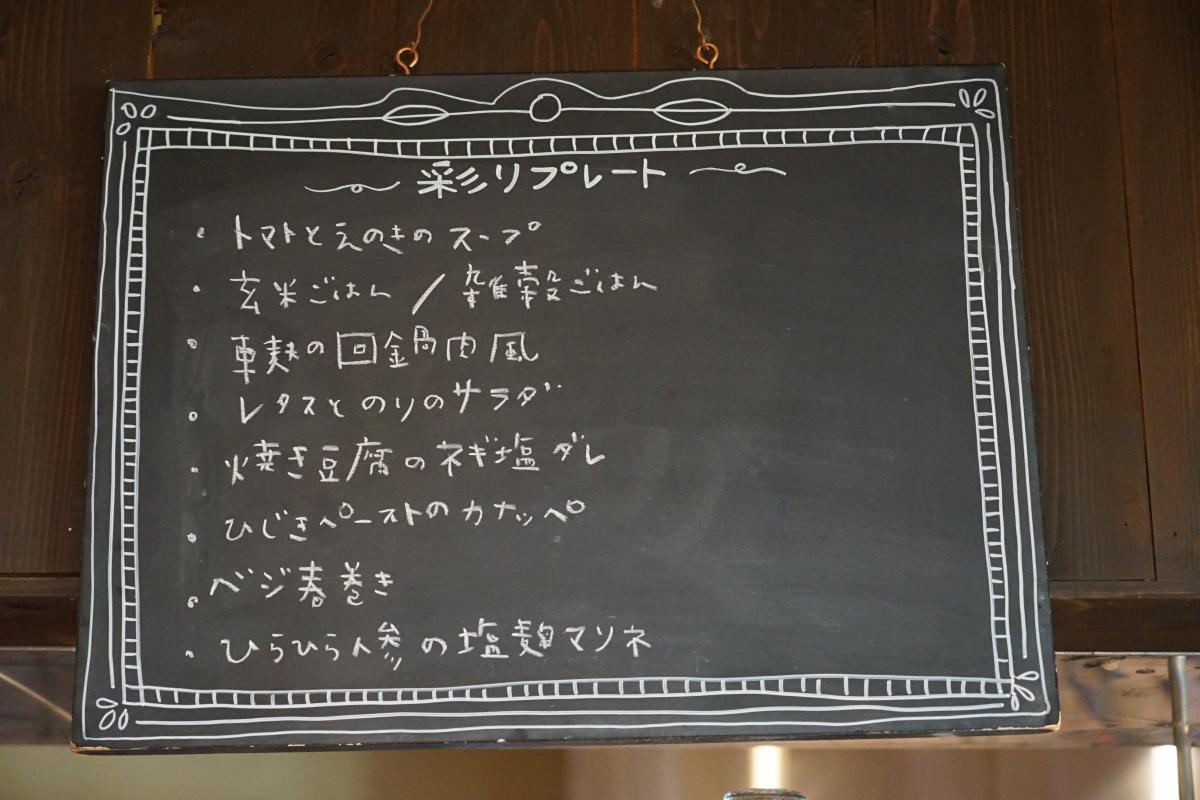 彩りプレート
・トマトとえのきのスープ
・玄米ごはん／雑穀ごはん
・車麩の回鍋肉風
・レタスとのりのサラダ
・焼き豆腐のネギ塩ダレ
・ひじきペーストのカナッペ
・ベジ春巻き
・ひらひら人参の塩麹マリネ